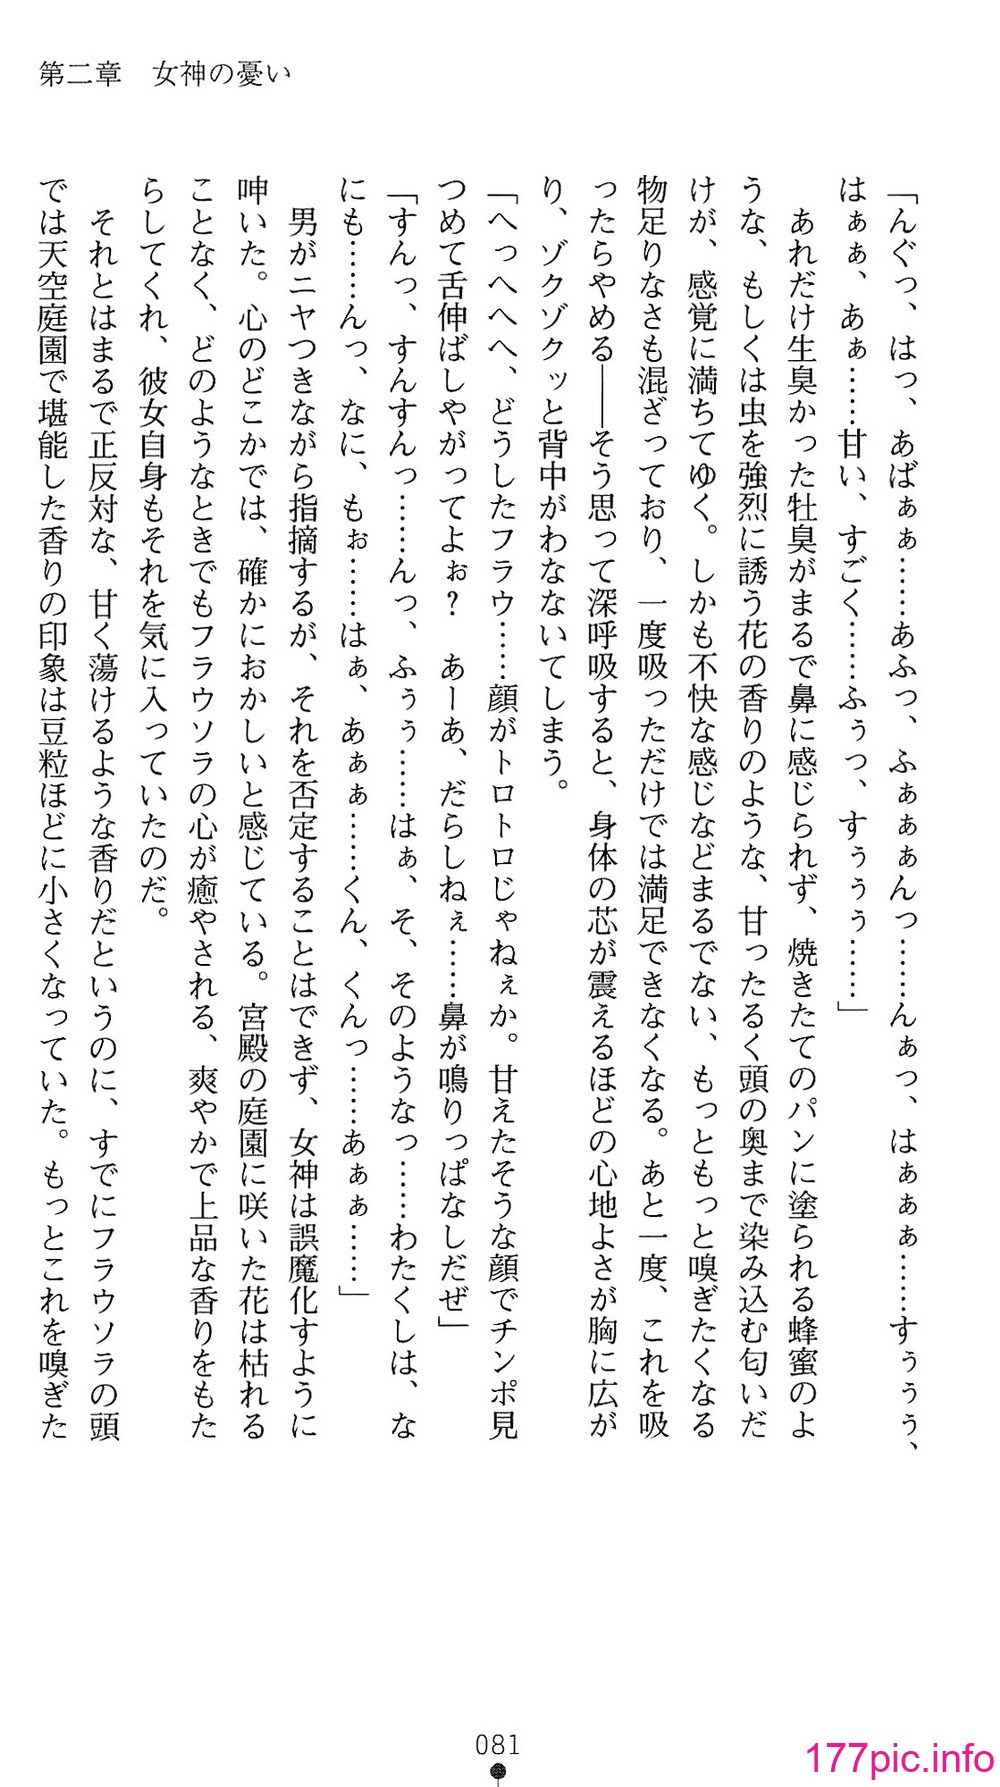 第二章　女神の憂い
「んぐっ、はっ、あばぁぁ……あふっ、ふぁぁぁんっ……んぁっ、はぁぁぁ……すぅぅぅ、
はぁぁ、あぁ……甘い、すごく……ふぅっ、すぅぅぅ……」
　あれだけ生臭かった牡臭がまるで鼻に感じられず、焼きたてのパンに塗られる蜂蜜のよ
うな、もしくは虫を強烈に誘う花の香りのような、甘ったるく頭の奥まで染み込む匂いだ
けが、感覚に満ちてゆく。しかも不快な感じなどまるでない、もっともっと嗅ぎたくなる
物足りなさも混ざっており、一度吸っただけでは満足できなくなる。あと一度、これを吸
ったらやめる――そう思って深呼吸すると、身体の芯が震えるほどの心地よさが胸に広が
り、ゾクゾクッと背中がわなないてしまう。
「へっへへへ、どうしたフラウ……顔がトロトロじゃねぇか。甘えたそうな顔でチンポ見
つめて舌伸ばしやがってよぉ？　あーあ、だらしねぇ……鼻が鳴りっぱなしだぜ」
「すんっ、すんすんっ……んっ、ふぅぅ……はぁ、そ、そのようなっ……わたくしは、な
にも……んっ、なに、もぉ……はぁ、あぁぁ……くん、くんっ……あぁぁ……」
　男がニヤつきながら指摘するが、それを否定することはできず、女神は誤魔化すように
呻いた。心のどこかでは、確かにおかしいと感じている。宮殿の庭園に咲いた花は枯れる
ことなく、どのようなときでもフラウソラの心が癒やされる、爽やかで上品な香りをもた
らしてくれ、彼女自身もそれを気に入っていたのだ。
　それとはまるで正反対な、甘く蕩けるような香りだというのに、すでにフラウソラの頭
では天空庭園で堪能した香りの印象は豆粒ほどに小さくなっていた。もっとこれを嗅ぎた
081
177pic.info